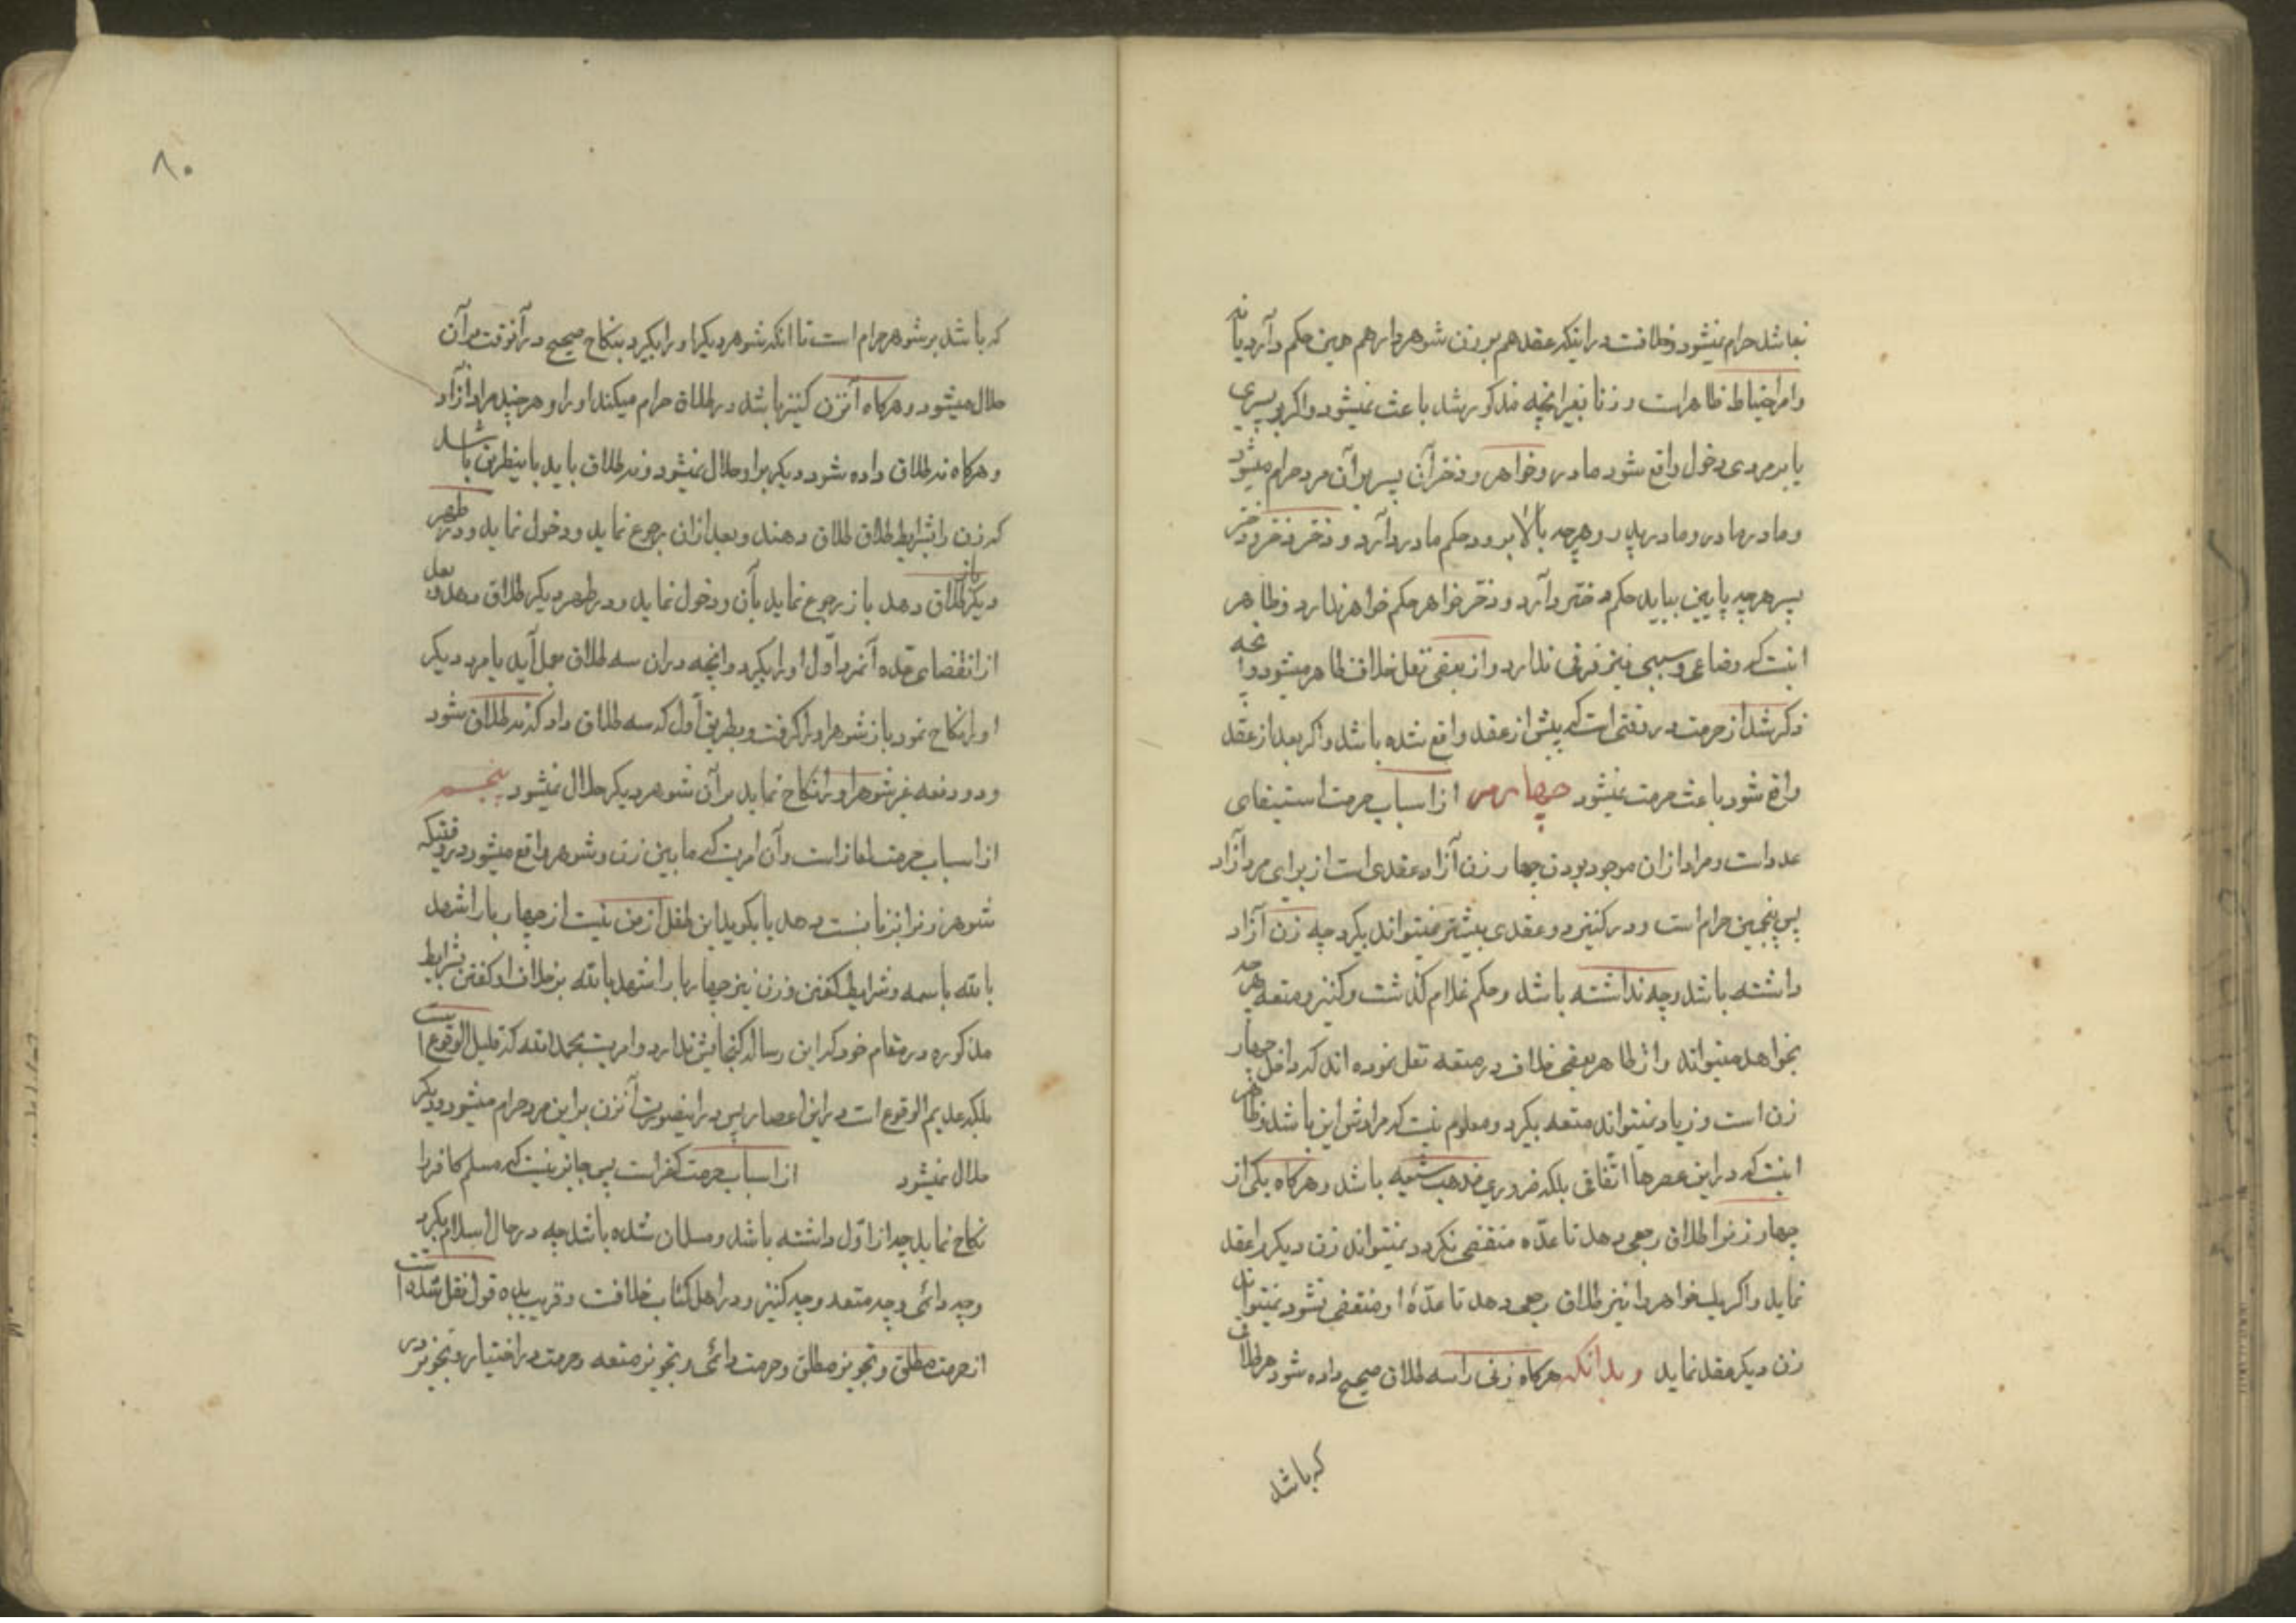 نباشد حرام نمیشود و خلافست در اینکه عقد هم بر زن شوهردار هم همین حکم دارد یا نه
و امر احتیاط ظاهر است و زنا بغیر انچه مذکور شد باعث نمیشود و اگر بر پسری
یا بر مردی دخول واقع شود مادر و خواهر و دختر آن پسر بر آن مرد حرام میشود
و مادر مادر و مادر پدر و هرچه بالا برود حکم مادر دارد و دختر دختر و دختر
پسر هرچه پایین بیاید حکم دختر دارد و دختر خواهر حکم خواهر ندارد و ظاهر
اینست که رضاعی و سببی نیز فرقی ندارد و از بعضی نقل خلاف ظاهر میشود و آنچه
ذکر شد از حرمت در وقتی است که پیش از عقد واقع شده باشد و اگر بعد از عقد
واقع شود باعث حرمت نمیشود چهارم از اسباب حرمت استیفای
عدد است و مراد از ان موجود بودن چهار زن آزاد عقدی است از برای مرد آزاد
پس پنجمین حرام است و در کنیز دو عقدی بیشتر نمیتواند بگیرد چه زن آزاد
داشته باشد و چه نداشته باشد و حکم غلام گذشت و کنیز و متعه هرچه
بخواهد میتواند و از ظاهر بعضی خلاف در متعه نقل نموده اند که داخل چهار
زن است و زیاد نمیتواند متعه بگیرد و معلوم نیست که مرادش این باشد و ظاهر
اینست که در این عصرها اتفاقی بلکه ضروری مذهب شیعه باشد و هرگاه یکی از
چهار زنرا طلاق رجعی دهد تا عدّه منقضی نگردد نمیتواند زن دیگر را عقد
نماید و اگر یک خواهر را نیز طلاق رجعی دهد تا عدّهٔ او منقضی نشود نمیتواند
زن دیگر عقد نماید و بدانکه هرگاه زنی را سه طلاق صحیح داده شود هر طلاق
که باشد
۸۰
که باشد بر شوهر حرام است تا انکه شوهر دیگر او را بگیرد بنکاح صحیح در آنوقت بر آن
حلال میشود و هرگاه آنزن کنیز باشد دو طلاق حرام میکند او را و هرچند مرد آزاد
و هرگاه نه طلاق داده شود دیگر بر او حلال نمیشود و نه طلاق باید باینطریق باشد
که زن را بشرایط طلاق طلاق دهند و بعد از ان رجوع نماید و دخول نماید و در طهر
دیگر باز طلاق دهد باز رجوع نماید بآن و دخول نماید و در طهر دیگر طلاق دهد و بعد
از انقضای عدّه آنمرد اوّل او را بگیرد و انچه در ان سه طلاق بعمل آید با مرد دیگر
او را نکاح نمود باز شوهر او را گرفت و بطریق اول که سه طلاق داد که نه طلاق شود
و دو دفعه غیر شوهر او را نکاح نماید بر آن شوهر دیگر حلال نمیشود پنجم
از اسباب حرمت لعان است و آن امریست که ما بین زن و شوهر واقع میشود در وقتیکه
شوهر زنرا بزنا نسبت دهد یا بگوید این طفل از من نیست از چهار بار اشهد
بالله باسمه و شرایط گفتن و زن نیز چهار بار اشهد بالله بر خلاف او گفتن بشرایط
مذکوره در مقام خود که این رساله گنجایش ندارد و امریست بحمدالله که قلیل الوقوع است
بلکه عدیم الوقوع است در این اعصار پس در اینصورت آنزن بر این مرد حرام میشود و دیگر
حلال نمیشود از اسباب حرمت کفر است پس جایز نیست که مسلم کافر را
نکاح نماید چه از اوّل داشته باشد و مسلمان شده باشد چه در حال اسلام بگیرد
و چه دائمی و چه متعه و چه کنیز و در اهل کتاب خلافست و قریب بده قول نقل شده است
از حرمت مطلق و تجویز مطلق و حرمت دائمی و تجویز متعه و حرمت در اختیار و تجویز در